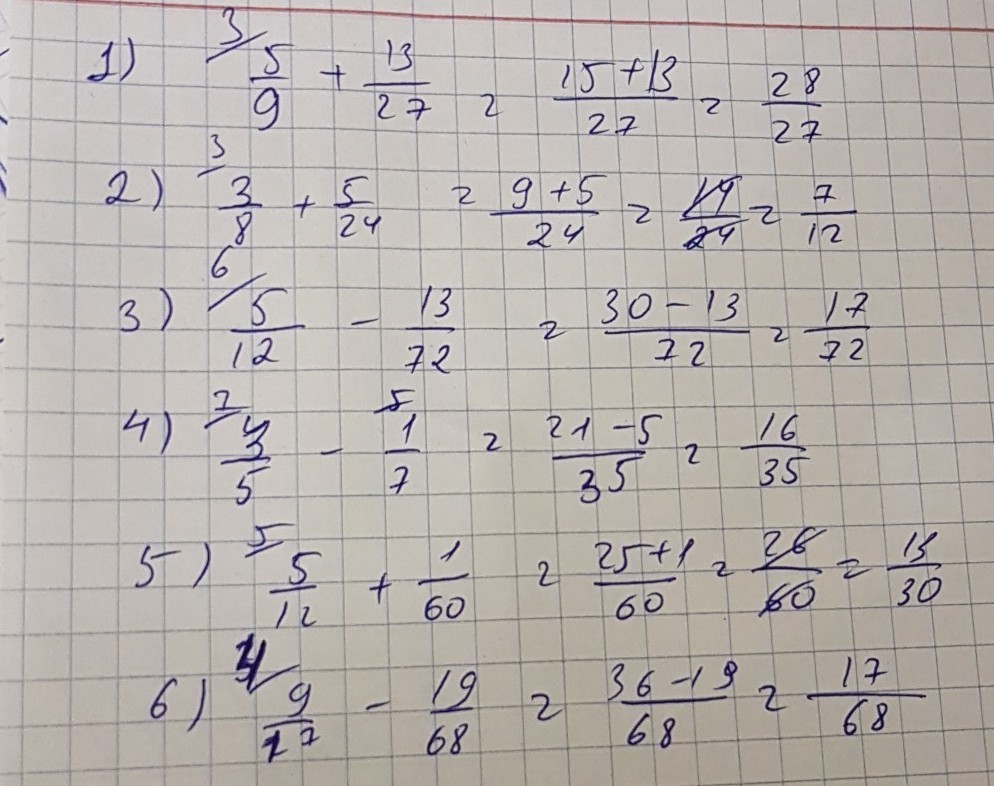 1) 3/ 5/9 + 13/27 = 15+13/27 = 28/27
2) 3/ 3/8 + 5/24 = 9+5/24 = 14/24 = 7/12
3) 6/ 5/12 - 13/72 = 30-13/72 = 17/72
4) 7/ 3/5 - 5/ 1/7 = 21-5/35 = 16/35
5) 5/ 5/12 + 1/60 = 25+1/60 = 26/60 = 13/30
6) 4/ 9/17 - 19/68 = 36-19/68 = 17/68